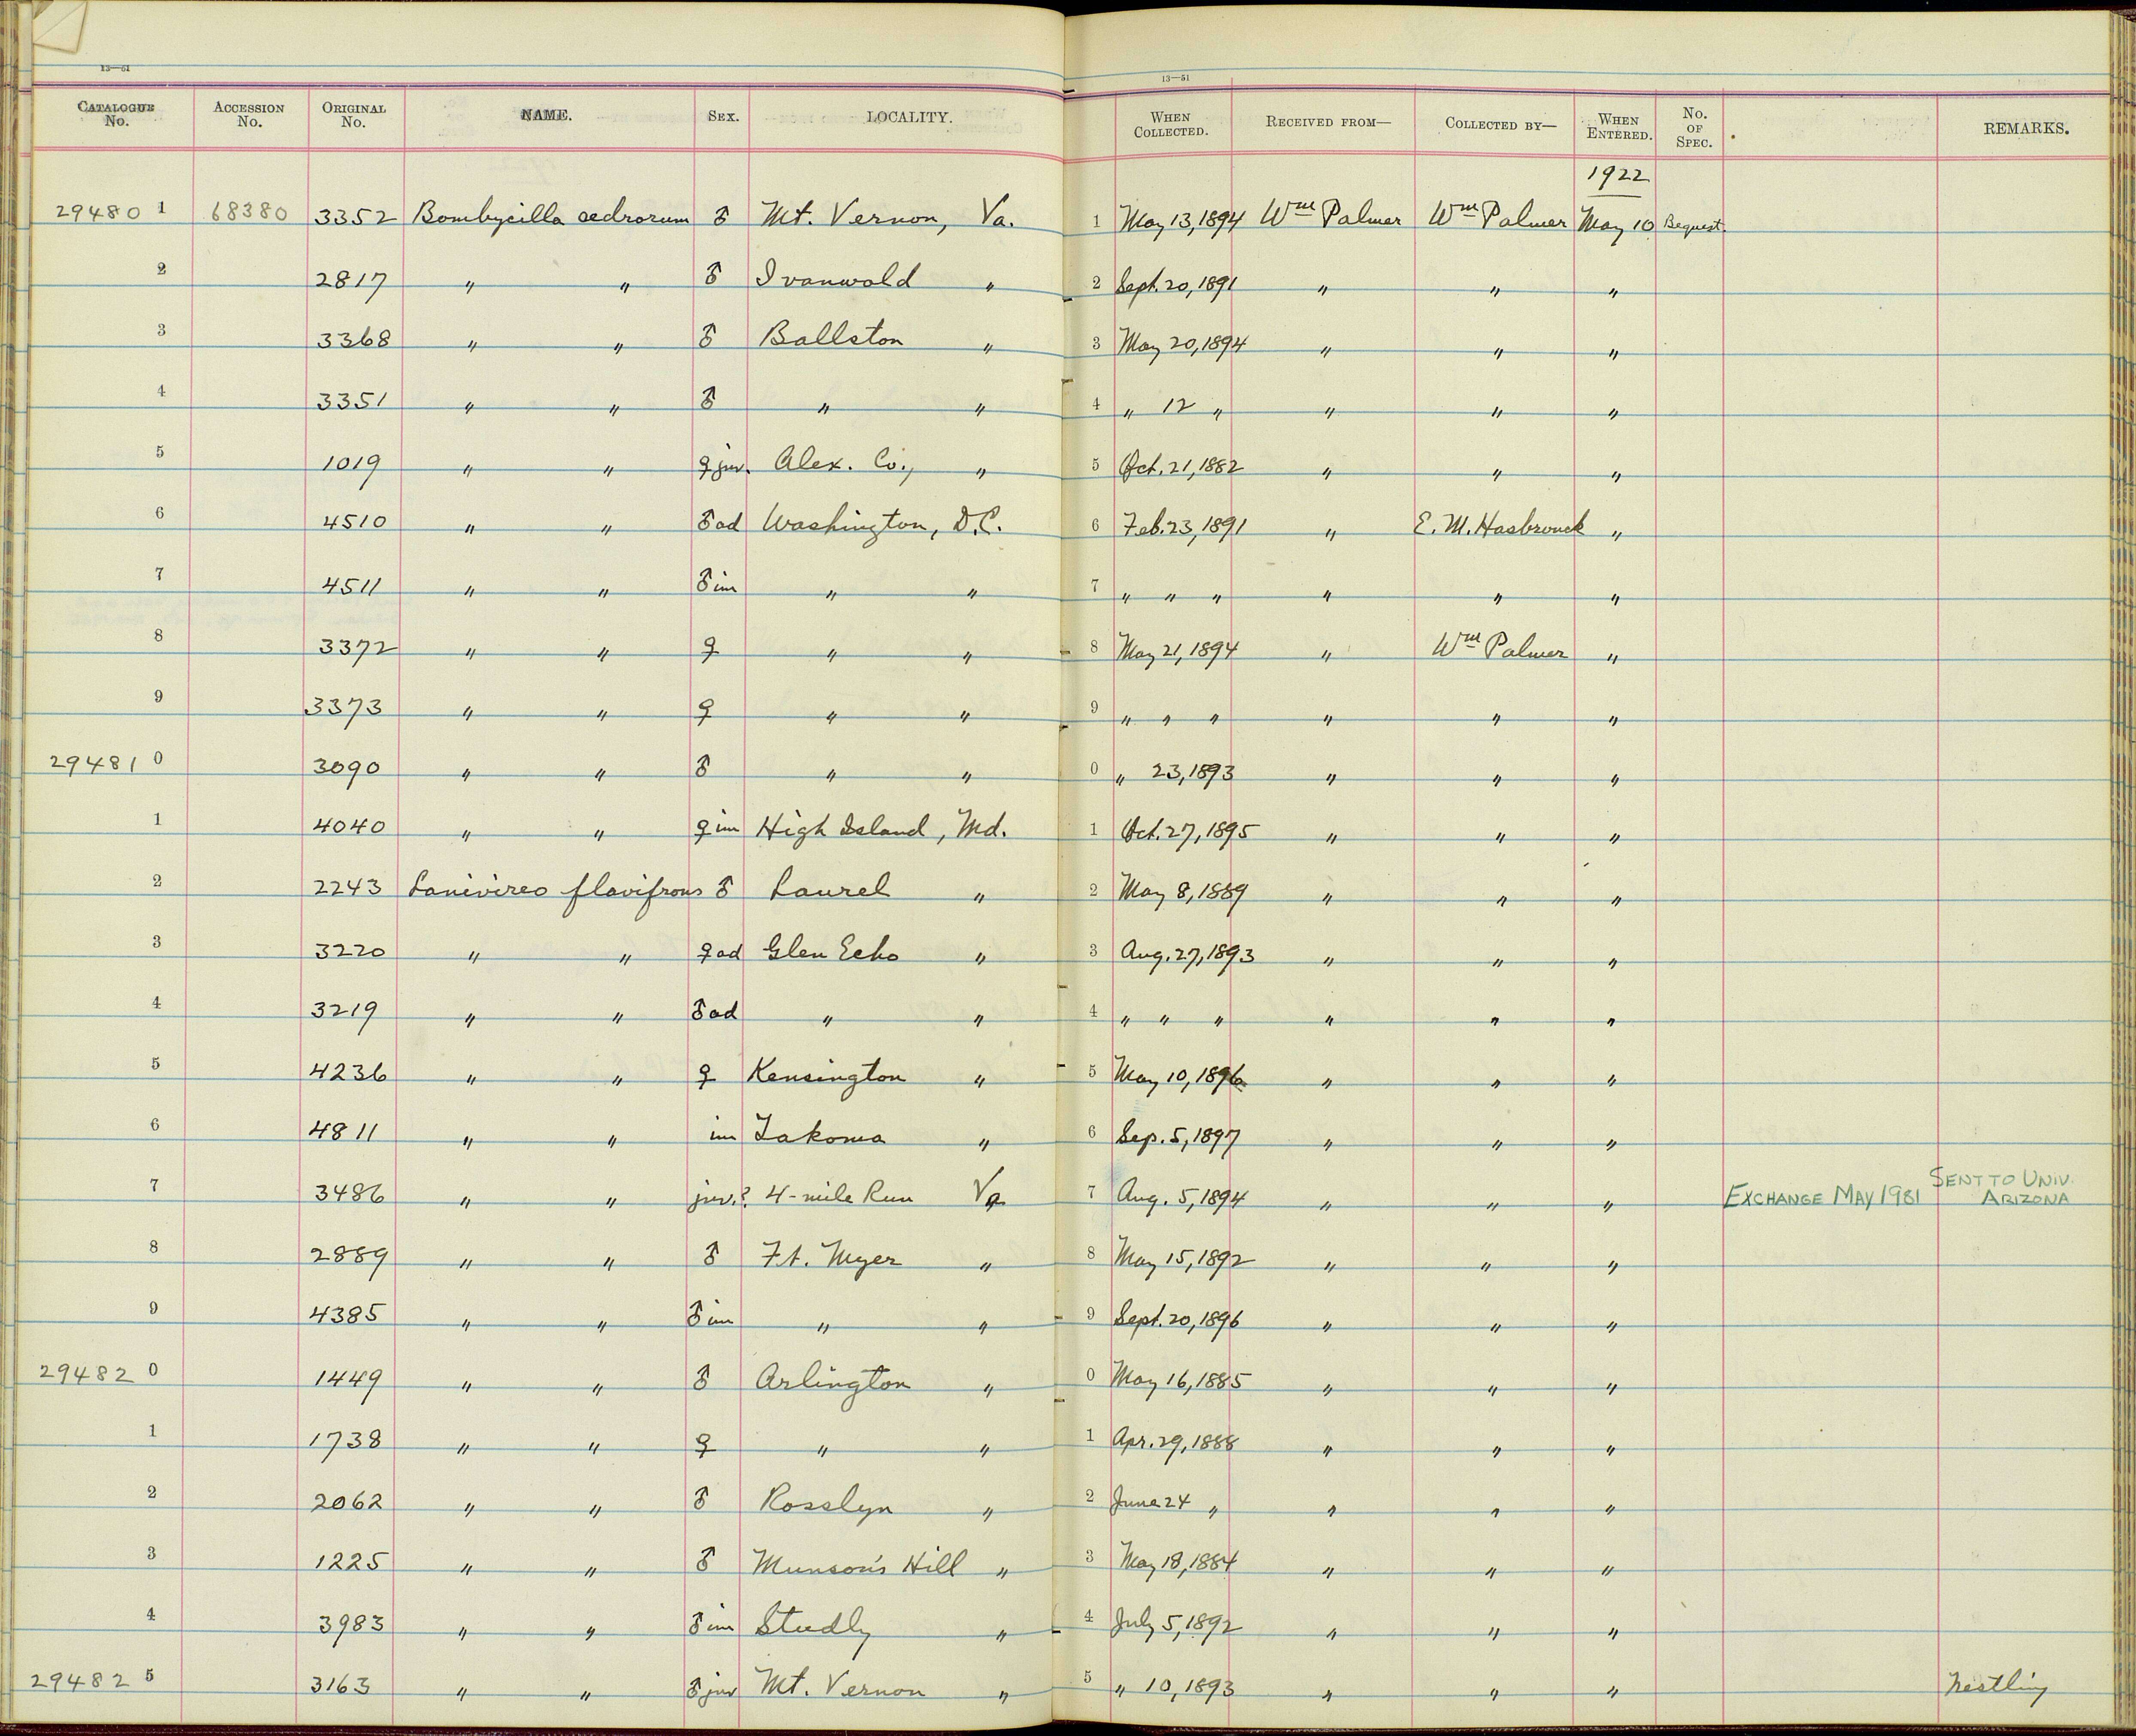 13—51
13—51
CATALOGUE No. ACCESSION No. ORIGINAL No. NAME. SEX. LOCALITY. WHEN COLLECTED. RECEIVED FROM— COLLECTED BY— WHEN ENTERED. No. OF SPEC. REMARKS.
1922
29480 1 68380 3352 Bombycilla cedrorum ♂ Mt. Vernon, Va. 1 May 13, 1894 Wm Palmer Wm Palmer May 10 Bequest.
2 2817 " " ♂ Ivanwold " 2 Sept. 20, 1891 " " "
3 3368 " " ♂ Ballston " 3 May 20, 1894 " " "
4 3351 " " ♂ " " 4 " 12 " " " "
5 1019 " " ♀ juv. Alex. Co., " 5 Oct. 21, 1882 " " "
6 4510 " " ♂ ad Washington, D.C. 6 Feb. 23, 1891 " E. M. Hasbrouck "
7 4511 " " ♂ im " " 7 " " " " " "
8 3372 " " ♀ " " 8 May 21, 1894 " Wm Palmer "
9 3373 " " ♀ " " 9 " " " " " "
29481 0 3090 " " ♂ " " 0 " 23, 1893 " " "
1 4040 " " ♀ im High Island, Md. 1 Oct. 27, 1895 " " "
2 2243 Lanivireo flavifrons ♂ Laurel " 2 May 8, 1889 " " "
3 3220 " " ♀ ad Glen Echo " 3 Aug. 27, 1893 " " "
4 3219 " " ♂ ad " " 4 " " " " " "
5 4236 " " ♀ Kensington " 5 May 10, 1896 " " "
6 4811 " " im Takoma " 6 Sep. 5, 1897 " " "
7 3486 " " juv.? 4-mile Run Va 7 Aug. 5, 1894 " " " EXCHANGE MAY 1981 SENT TO UNIV. ARIZONA
8 2889 " " ♂ Ft. Myer " 8 May 15, 1892 " " "
9 4385 " " ♂ im " " 9 Sept. 20, 1896 " " "
29482 0 1449 " " ♂ Arlington " 0 May 16, 1885 " " "
1 1738 " " ♀ " " 1 Apr. 29, 1888 " " "
2 2062 " " ♂ Rosslyn " 2 June 24 " " " "
3 1225 " " ♂ Munson's Hill " 3 May 18, 1884 " " "
4 3983 " " ♂ im Studly " 4 July 5, 1892 " " "
29482 5 3163 " " ♂ juv Mt. Vernon " 5 " 10, 1893 " " " Nestling